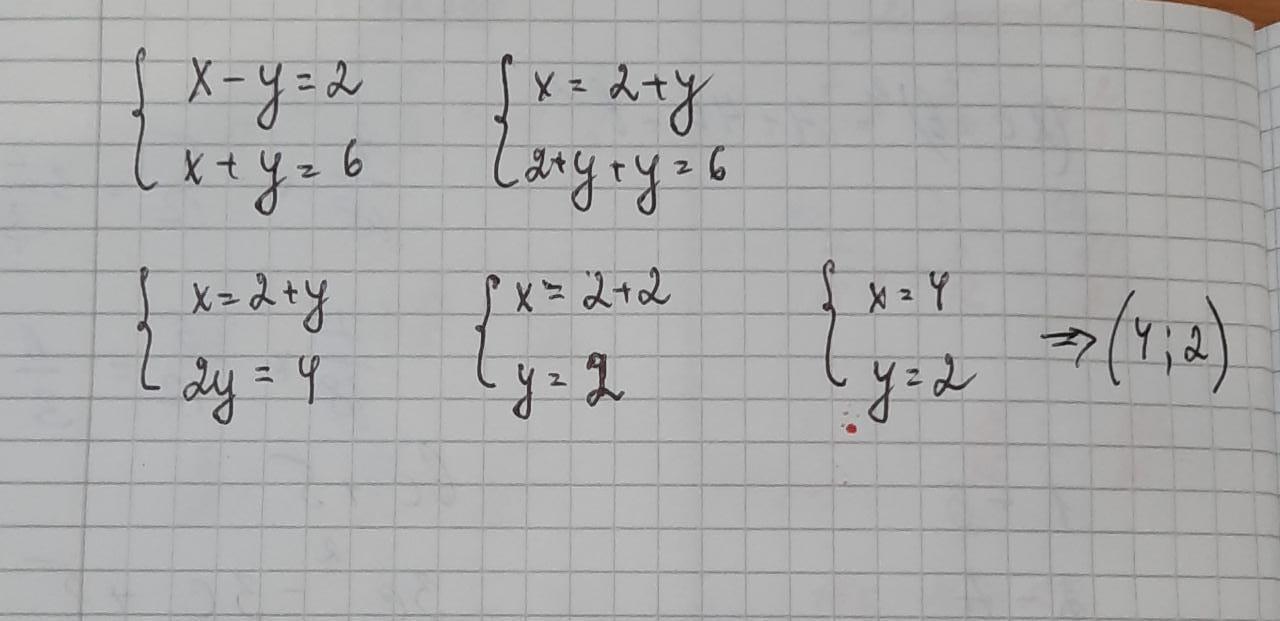 x - y = 2
x + y = 6
x = 2 + y
2 + y + y = 6
x = 2 + y
2y = 4
x = 2 + 2
y = 2
x = 4
y = 2
⇒ (4; 2)